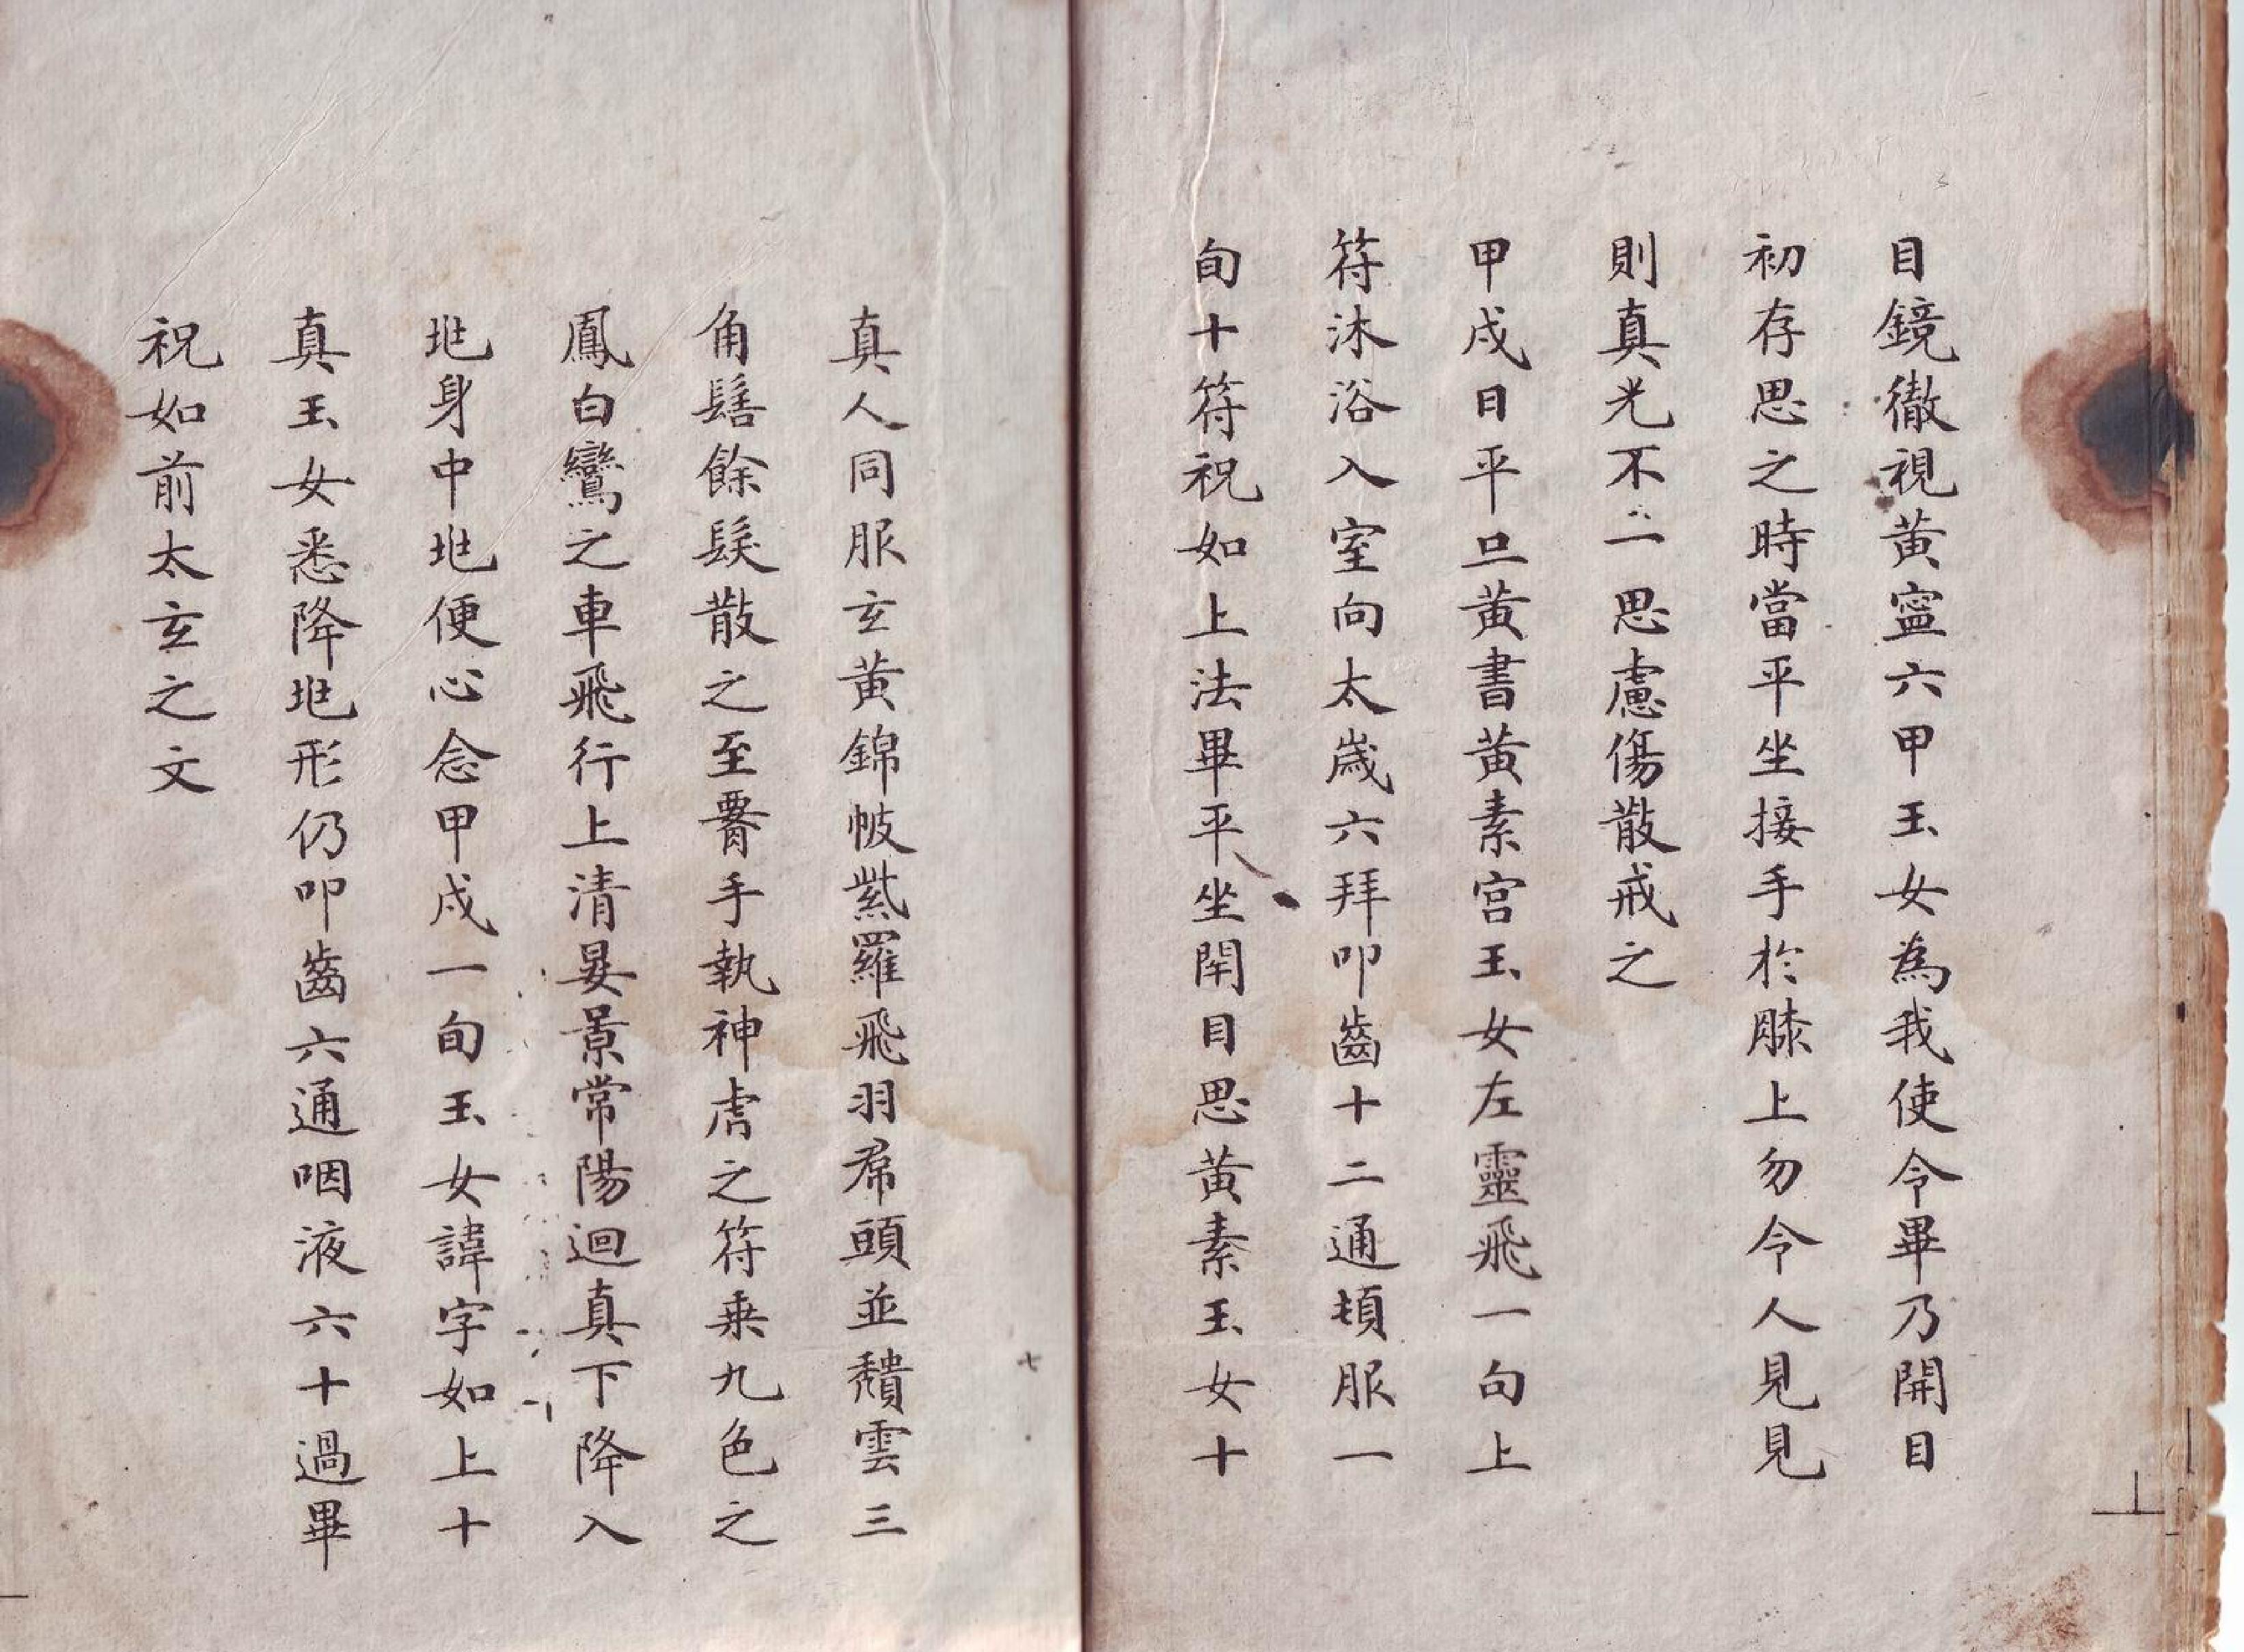 目鏡徹視黃寍六甲玉女為我使令畢乃開目
初存思之時當平坐接手於膝上勿令人見見
則真光不二思慮傷散戒之
甲戌日平旦黃書黃素宮玉女左靈飛一旬上
符沐浴入室向太歲六拜叩齒十二通頓服一
旬十符祝如上法畢平坐閇目思黃素玉女十
真人同服玄黃錦帔紫羅飛羽帬頭並穨雲三
角髻餘髮散之至署手執神虎之符乗九色之
鳳白鸞之車飛行上清晏景常陽迴真下降入
兆身中兆便心念甲戌一旬玉女諱字如上十
真玉女悉降兆形仍叩齒六通咽液六十過畢
祝如前太玄之文
七